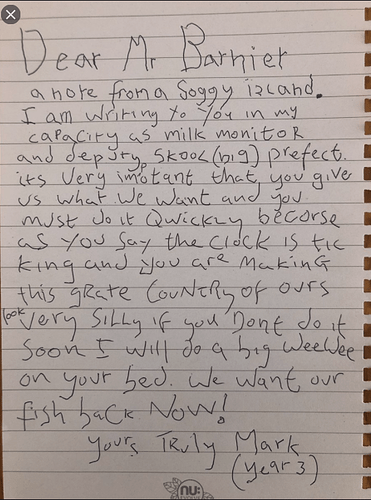 Dear Mr Barnier
a note from a Soggy island.
I am writing to you in my
capacity as milk monitor
and deputy skool (big) prefect.
its Very imotant that you give
us what we want and you
must do it Qwickly becorse
as you say the clock is tic
king and you are making
this grate country of ours
look very silly if you Dont do it
soon I will do a big weewee
on your bed. We want our
fish back NOW!
yours Truly Mark
(year 3)
nu: